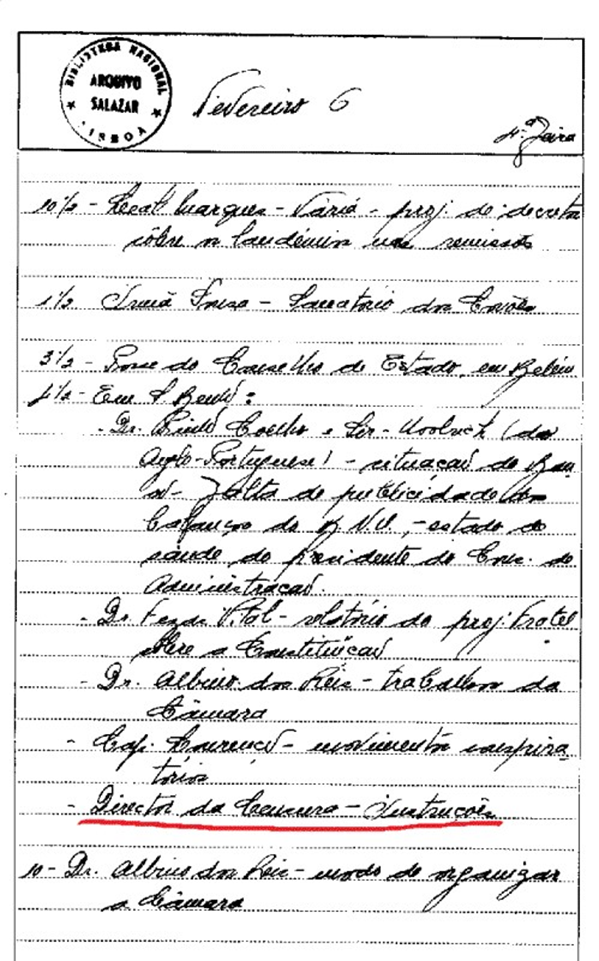 BIBLIOTECA NACIONAL
ARQUIVO
SALAZAR
LISBOA
Fevereiro 6
4.ª feira
10 1/2 - Marques - Vária - proj. de decreto
sôbre o laudémio nas remissões
1 1/2
3 1/2 - Posse do Conselho de Estado, em Belém
4 1/2 - Em S. Bento:
- Dr. Pinto Coelho e (do
Anglo-Portuguese) - situação do Ban
co - falta de publicidade dos
balanços do B.N.U. - estado de
saúde do presidente do Cons. de
Administração.
- Dr. Fezas Vital - relatório do proj. Fratel
sôbre a Constituição
- Dr. Albino dos Reis - trabalhos da
Câmara
- Cap. Lourenço - movimentos conspira-
tórios
- Director da Censura - Instruções
10 - Dr. Albino dos Reis - modo de organizar
a Câmara